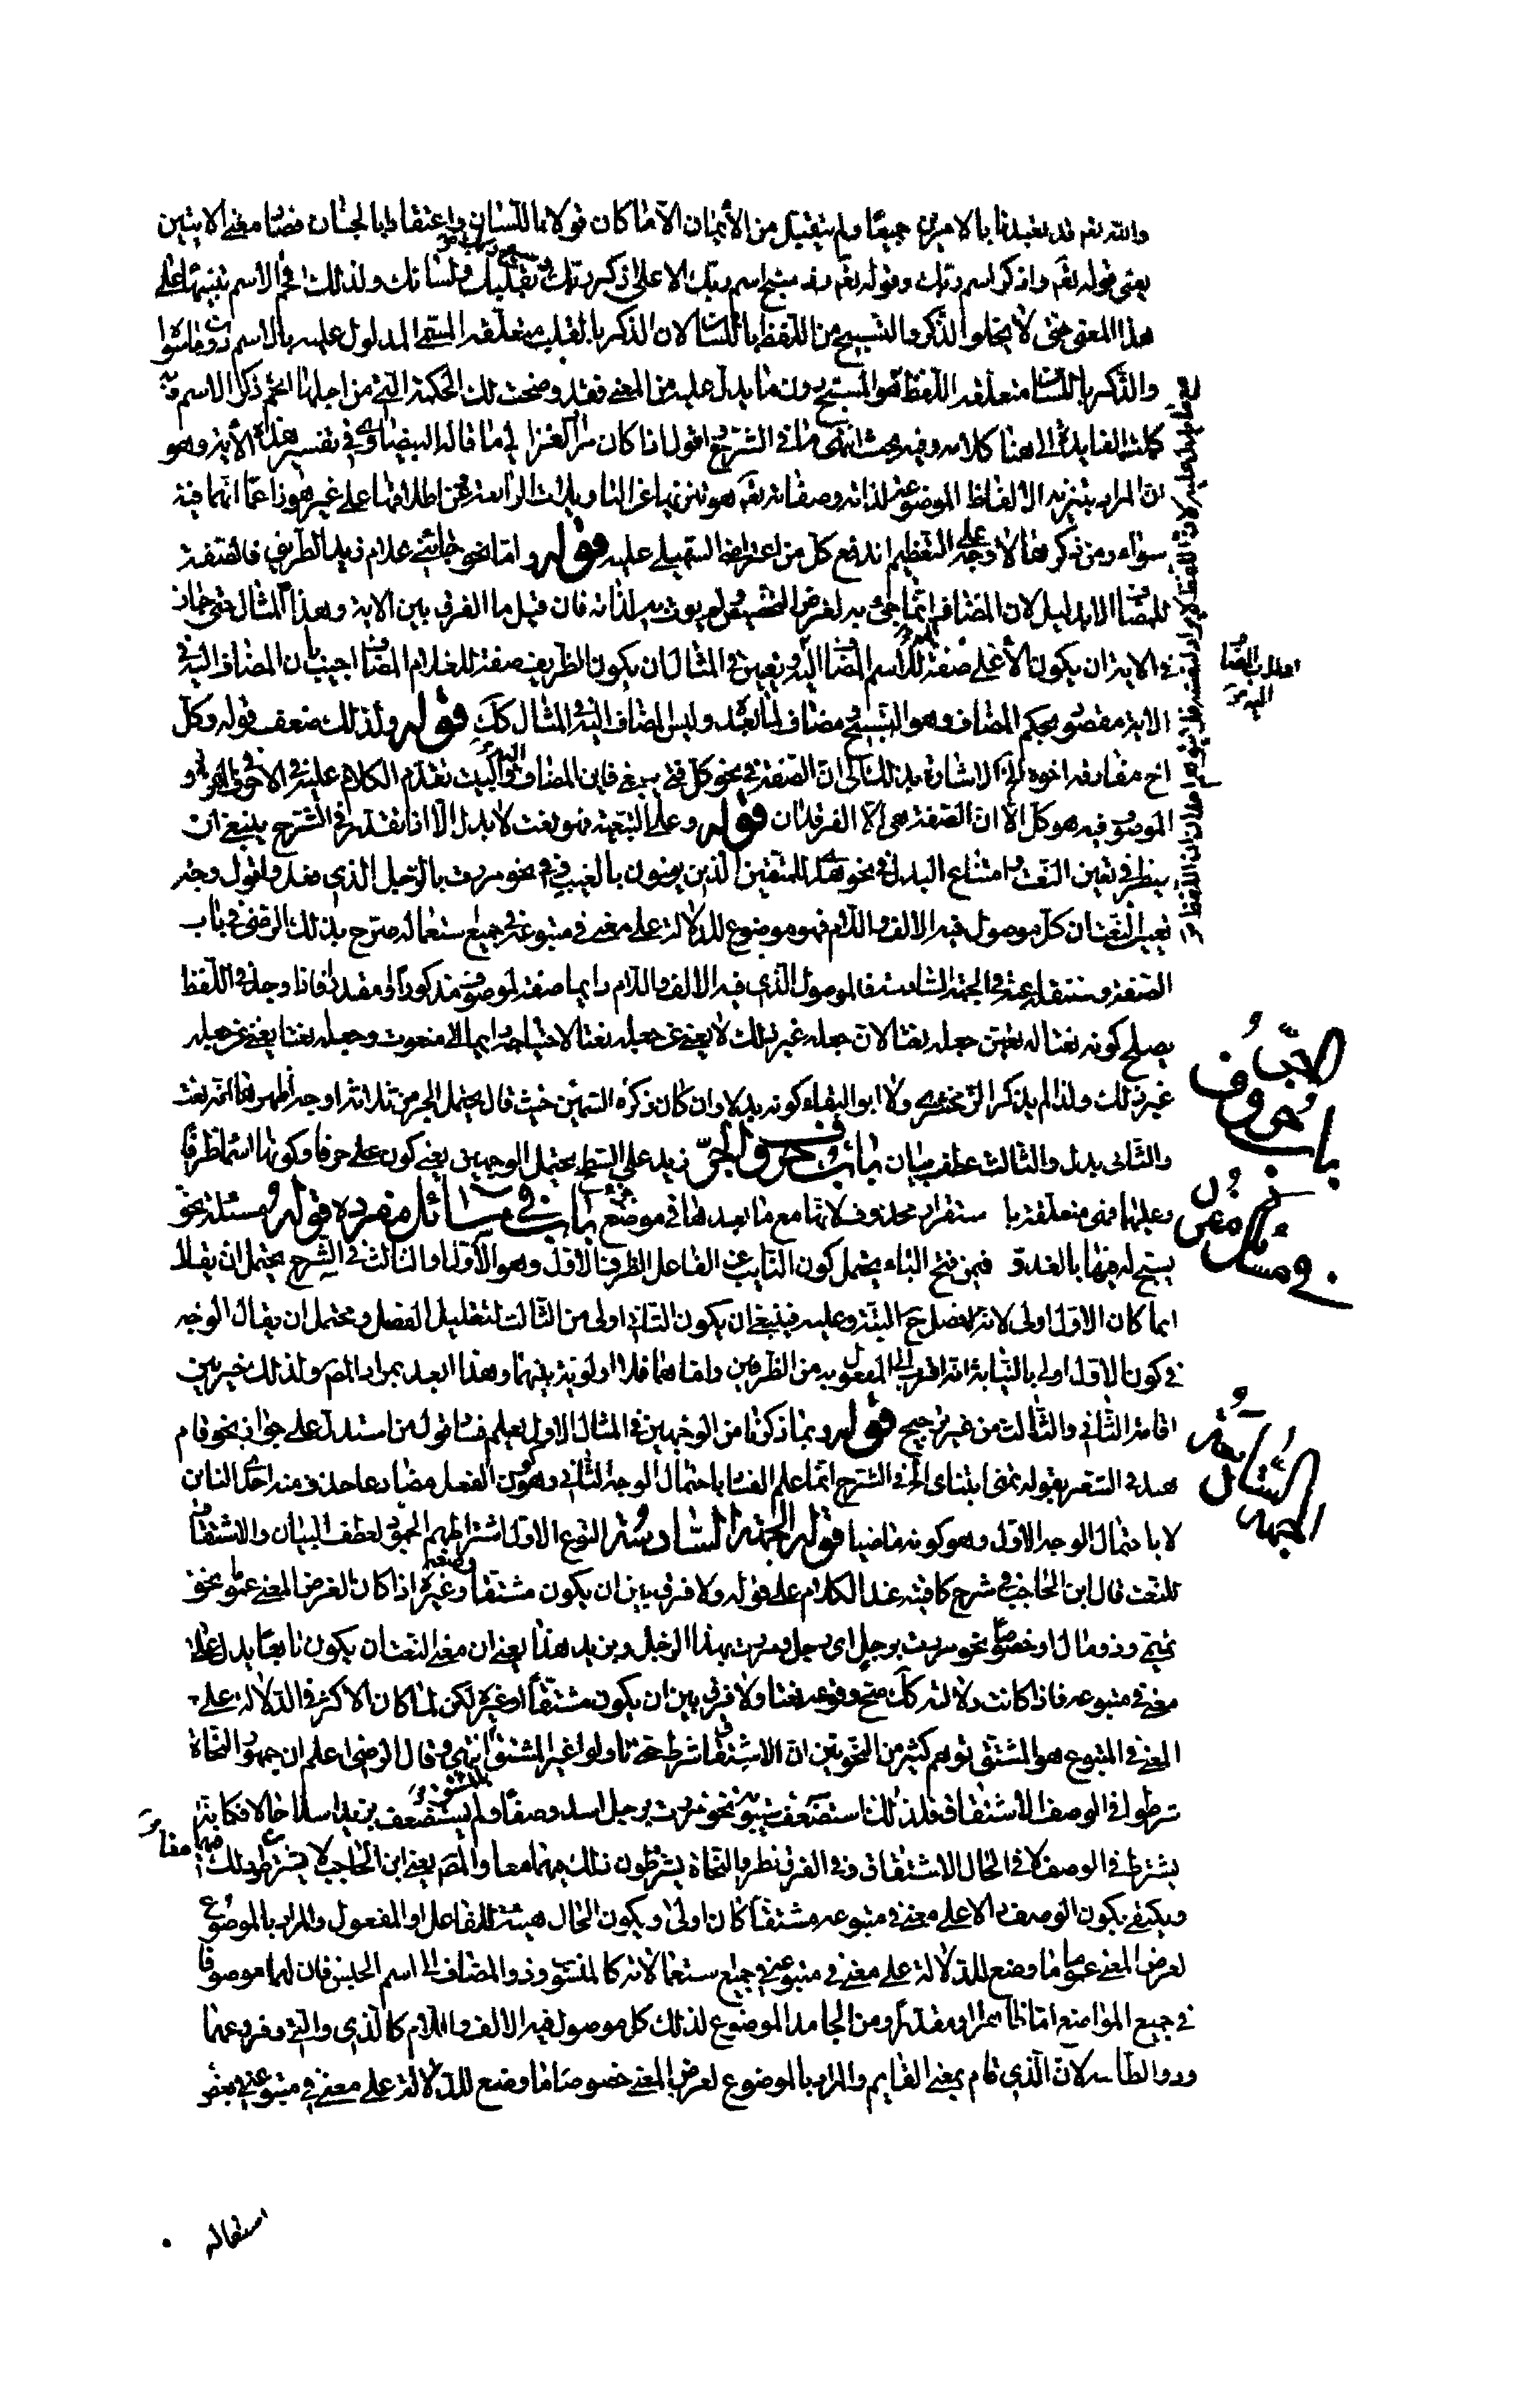 والله تعم قد تعبدنا بالامرين جميعا ولم يتقبل من الأيمان الا ما كان قولا باللسان واعتقادا بالجنان فصار معنى الايتين
يعني قوله تعم واذكر اسم ربك وقوله تعم سبح اسم ربك الاعلى اذكر ربك بقلبك ولسانك ولذلك اقحم الاسم تنبيها على
هذا المعنى حتى لا يخلوا الذكر والتسبيح من اللفظ باللسان لان الذكر بالقلب متعلقه المسمى المدلول عليه بالاسم دون ما سواه
والذكر باللسان متعلقه اللفظ دون ما يدل عليه من المعنى فقد وضحت لك الحكمة التي من اجلها اقحم ذكر الاسم
الى هنا كلامه وفيه بحث انتهى ما في الشرح اقول اذا كان مآل لما قاله البيضاوي في تفسير هذه الأية وهو
ان المراد بتنزيه الالفاظ الموضوعة لذاته وصفاته تعم هو تنزيهها عن التاويلات الزايغة وعن اطلاقها على غيره زاعما انهما فيه
سواء ومن ذكرها لا على وجه التعظيم اندفع كل من اعتراض السهيلي عليه قوله واما نحو جائني غلام زيد الظريف فالصفة
للمضاف الا بدليل لان المضاف اليه انما جئ به لغرض التخصيص لم يوت به لذاته فان قيل ما الفرق بين الاية وهذا المثال حتى جاز
في الاية ان يكون الأعلى صفة للاسم المضاف او المضاف اليه وتعين في المثال ان يكون الظريف صفة للغلام المضاف اجيب بان المضاف اليه في
الاية مقصود بحكم المضاف وهو التسبيح وليس المضاف اليه في المثال كك قوله ولذلك ضعف قوله وكل
اخ مفارقه اخوه الاشارة بذلك الى ان الصفة في نحو كل فتى للمضاف اليه والبيت تقدم الكلام عليه في الا
الموصوف فيه هو كل لان الصفة هي الا الفرقدان قوله وعلى التبعية فهو نعت لا بدل الا اذا تعذر في الشرح ينبغي ان
ينظر في تعين النعت وامتناع البدل في نحو هدى للمتقين الذين يومنون بالغيب وفي نحو مررت بالرجل الذي فعل واقول وجه
تعين النعت ان كل موصول فيه الالف واللام فهو موضوع للدلالة على معنى في متبوعه في جميع استعماله صرح بذلك الرضي في باب
الصفة وسننقله عنه في الجهة السادسة فالموصول الذي فيه الالف واللام دايما صفة لموصوف مذكور او مقدر فاذا وجد في اللفظ
يصلح كونه نعتا له تعين جعله نعتا لان جعله غير ذلك لا يغني عن جعله نعتا لاحتياجه دايما الى منعوت وجعله نعتا يغني عن جعله
غير ذلك ولذا لم يذكر الزمخشري ولا ابو البقاء كونه بدلا وان كان ذكره السمين حيث قال يحتمل الجر من ثلاثة اوجه اظهرها انه نعت
والثاني بدل والثالث عطف بيان باب حروف الجر زيد على السطح يحتمل الوجهين يعني كون على حرفا وكونها اسما ظرفا
وعليهما فهي متعلقة باستقرار محذوف لانها مع ما بعدها في موضع باب في مسائل مفردة قوله مسئلة نحو
يسبح له فيها بالغدو فيمن فتح الباء يحتمل كون النايب عن الفاعل الظرف الاول وهو الأولى او الثاني او الثالث في الشرح يحتمل ان يقال
انما كان الاول اولى لانه لا فصل ح البتة وعليه فينبغي ان يكون الثاني اولى من الثالث لتقليل الفصل ويحتمل ان يقال الوجه
في كون الاول اولى بالنيابة انه اقرب الى المفعول به من الظرفين واما هما فلا اولوية بينهما وهذا اقعد بمراد المص ولذلك خير بين
اقامة الثاني والثالث من غير ترجيح قوله وبما ذكرنا من الوجهين في المثال الاول يعلم فساد قول من استدل على جواز نحو قام
هند في الشعر بقوله تمنى ابنتاي الخ في الشرح انما علم الفساد باحتمال الوجه الثاني وهو كون الفعل مضارعا حذف منه احدى التائين
لا باحتمال الوجه الاول وهو كونه ماضيا قوله الجهة السادسة النوع الاول اشتراطهم الجمود لعطف البيان والاشتقاق
للنعت قال ابن الحاجب في شرح كافيته عند الكلام على قوله ولا فرق بين ان يكون مشتقا وغيره اذا كان وضعه لغرض المعنى عموما نحو
تميمي وذو مال او خصوصا نحو مررت برجل اي رجل ومررت بهذا الرجل وبزيد هذا يعني ان معنى النعت ان يكون تابعا يدل على
معنى في متبوعه فاذا كانت دلالته كك صح وقوعه نعتا ولا فرق بين ان يكون مشتقا او غيره لكن لما كان الاكثر في الدلالة على
المعنى في المتبوع هو المشتق توهم كثير من النحويين ان الاشتقاق شرط حتى تاولوا غير المشتق بالمشتق انتهى وقال الرضي اعلم ان جمهور النحاة
شرطوا في الوصف الاشتقاق فلذلك استضعف سيبويه نحو مررت برجل اسد وصفا ولم يستضعف بزيد اسدا حالا فكانه
يشترط في الوصف لا في الحال الاشتقاق وفي الفرق نظر والنحاة يشترطون ذلك فيهما معا والمص يعني ابن الحاجب لا يشترط ذلك فيهما
ويكتفي بكون الوصف دالا على معنى في متبوعه مشتقا كان اولى ويكون الحال هيئة للفاعل او المفعول والمراد بالموضوع
لغرض المعنى عموما ما وضع للدلالة على معنى في متبوعه في جميع استعمالاته كالمنسوب وذو المضاف الى اسم الجنس فان لهما موصوفا
في جميع المواضع اما ظاهرا او مقدرا ومن الجامد الموضوع لذلك كل موصول فيه الالف واللام كالذي والتي وفروعهما
وذو الطائيه لان الذي قام بمعنى القايم والمراد بالموضوع لغرض المعنى خصوصا ما وضع للدلالة على معنى في متبوعه في بعض
استعماله
باب حروف الجر
في مسائل مفردة
الجهة السادسة